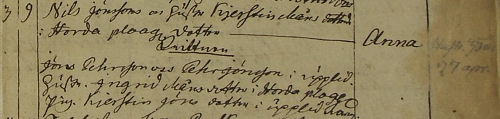 3 9 Nils Jönssons och Hustr Kjerstin Måns dotter
i Horda ploag dotter Anna
Vittnen
Jöns Pehrssons Pehr Jönsson i Upplid.
Hustr. Ingrid Måns dotter i Horda ploag
Pig. Kjerstin Jöns dotter i Upplid